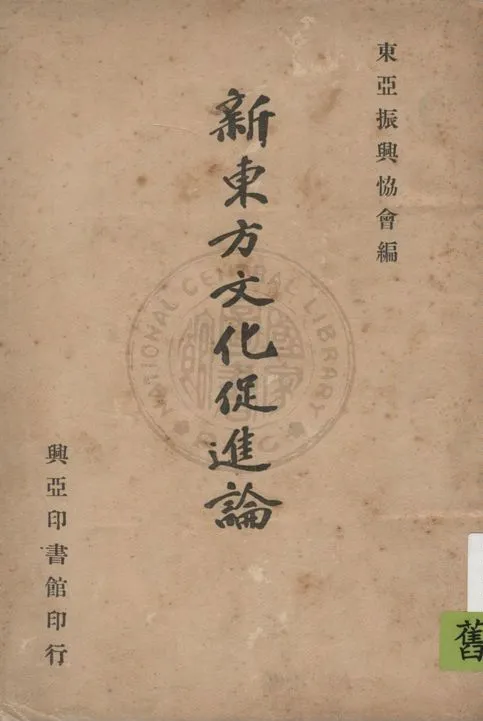 東亞振興恊會編
新東方文化促進論
興亞印書館印行
NATIONAL CENTRAL LIBRARY
舊